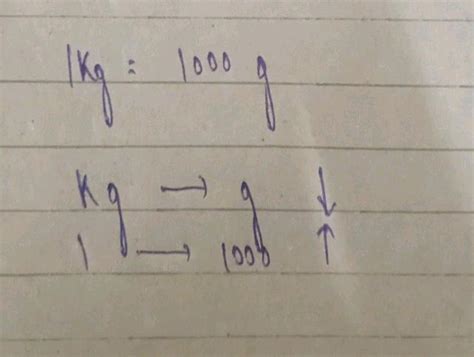 1Kg = 1000 g
Kg → g ↓
1 → 1000 ↑